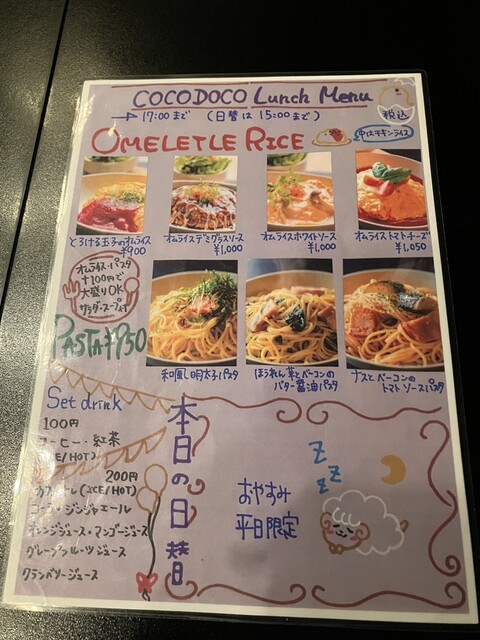 COCODOCO Lunch Menu
→ 17:00まで (日替は 15:00まで)
税込
OMELETLE RICE
中はチキンライス
とろける玉子のオムライス
¥900
オムライスデミグラスソース
¥1,000
オムライスホワイトソース
¥1,000
オムライストマトチーズ
¥1,050
オムライス・パスタ
+100円で
大盛りOK
サラダ・スープ付
PASTA ¥950
和風明太子パスタ
ほうれん草とベーコンの
バター醤油パスタ
ナスとベーコンの
トマトソースパスタ
Set drink
100円
コーヒー・紅茶
(ICE/HOT)
200円
カフェオーレ(ICE/HOT)
コーラ・ジンジャエール
オレンジジュース・マンゴージュース
グレープフルーツジュース
クランベリージュース
本日の日替
おやすみ
平日限定
Z
Z
Z